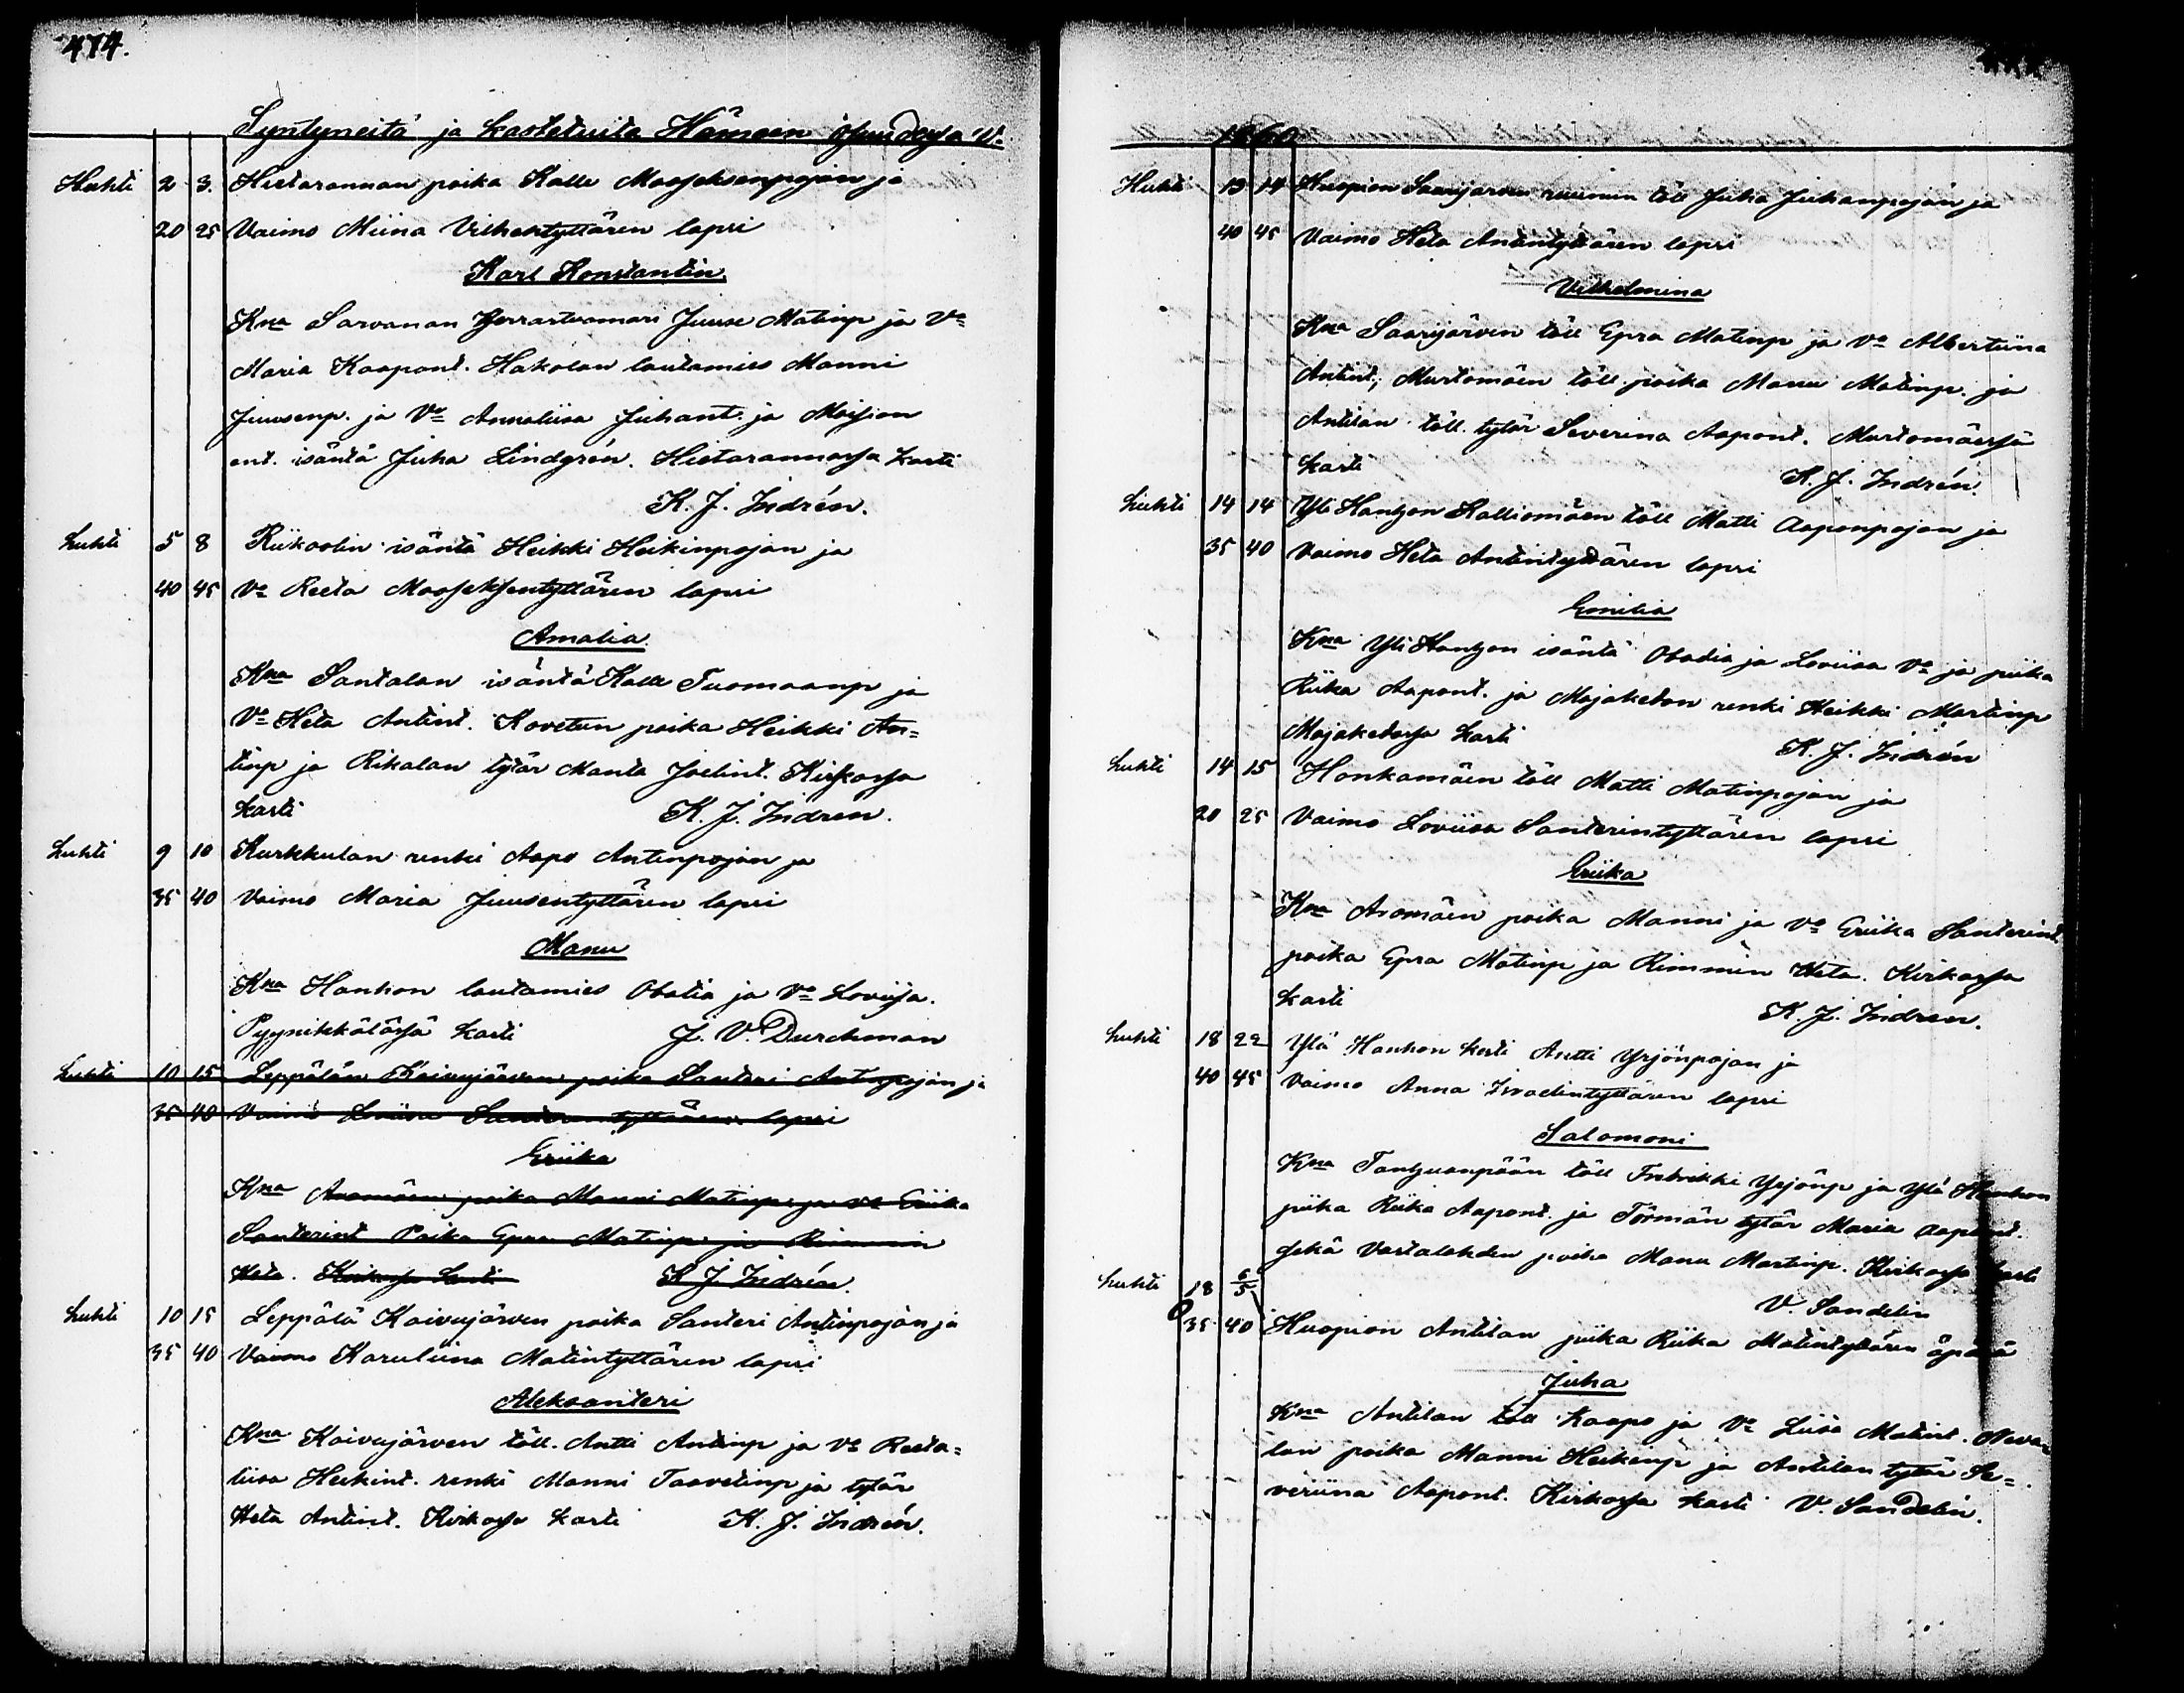 474.
Syntyneitä ja kastetuita Hämeen
Huhti 2 3. Hietarannan poika Kalle Mooseksenpojan ja
20 25 Vaimo Miina Vilhentyttären lapsi
Karl Konstantin.
Kna Sarvanan Herrastuomari Juuse Matinp ja Va
Maria Kaapont. Hakolan lautamies Manni
Juusenp. ja Va Annaliisa Juhant. ja
ent. isäntä Juha Lindgrén. Hietarannassa kasti
K. J. Indrén.
huhti 5 8 Riikoolin isäntä Heikki Heikinpojan ja
40 45 Va Reeta Mooseksentyttären lapsi
Amalia.
Kna Santalan isäntä Kalle Tuomaanp ja
Va Heta Antint. Kovetun poika Heikki An=
tinp ja Rikalan tytär Manta Joelint. Kirkossa
kasti K. J. Indren.
huhti 9 10 Kurkkulan renki Aapo Antinpojan ja
35 40 Vaimo Maria Juusentyttären lapsi
Manu
Kna Hanhon lautamies Obatia ja Va Lovisa.
Pyynikkälässä kasti J. V. Durchman
huhti 10 15 Leppälän Koivujärven poika Santeri Antinpojan ja
35 40 Vaimo Loviisa Santerintyttären lapsi
Eriika
Kna Aromäen poika Manni Matinp ja va Eriika
Santerint Poika Epra Matinp ja Rimmin
Heta. Kirkossa kasti K. J. Indrén.
huhti 10 15 Leppälä Koivujärven poika Santeri Antinpojan ja
35 40 Vaimo Karuliina Matintyttären lapsi
Aleksanteri
Kna Koivujärven töll. Antti Antinp ja va Reeta=
liisa Heikint. renki Manni Taavetinp ja tytär
Heta Antint. Kirkossa kasti K. J. Indrén.
1860
Huhti 13 14 Kuopion Saarijärven ruunun töll Juha Juhanpojan ja
40 45 Vaimo Heta Anttintyttären lapsi
Vilhelmina
Kna Saarijärven töll Epra Matinp ja va Albertiina
Antint; Murtomäen töll. poika Manu Matinp. ja
Antilan töll. tytär Severina Aapont. Murtomäessä
kasti K. J. Indrén.
huhti 14 14 Yli Kalliomäen töll Matti Aaponpojan ja
35 40 Vaimo Heta Antintyttären lapsi
Emilia
Kna Yli isäntä Obadia ja Loviisa va ja piika
Riika Aapont. ja Majakedon renki Heikki Martinp
Majakedossa kasti K. J. Indrén
huhti 14 15 Honkamäen töll Matti Matinpojan ja
20 25 Vaimo Loviisa Santerintyttären lapsi
Eriika
Kna Aromäen poika Manni ja va Eriika Santerint.
poika Epra Matinp ja Rimmin Heta. Kirkossa
kasti K. J. Indren.
huhti 18 22 Ylä Hanhon kesti Antti Yrjönpojan ja
40 45 Vaimo Anna Israelintyttären lapsi
Salomoni
Kna töll Fredrikki Yrjönp ja Ylä Hanhon
piika Riika Aapont. ja Törmän tytär Maria Aapont.
sekä Vastalahden poika Manu Martinp. Kirkossa kasti
V. Sandelin
huhti 18 6/5
35 40 Kuopion Antilan piika Riika Matintyttären äpärä
Juha
Kna Antilan töll Kaapo ja Va Liisa Matint. Neva=
lan poika Manni Heikinp ja Antilan tytär Se=
veriina Aapont. Kirkossa kasti V. Sandelin.